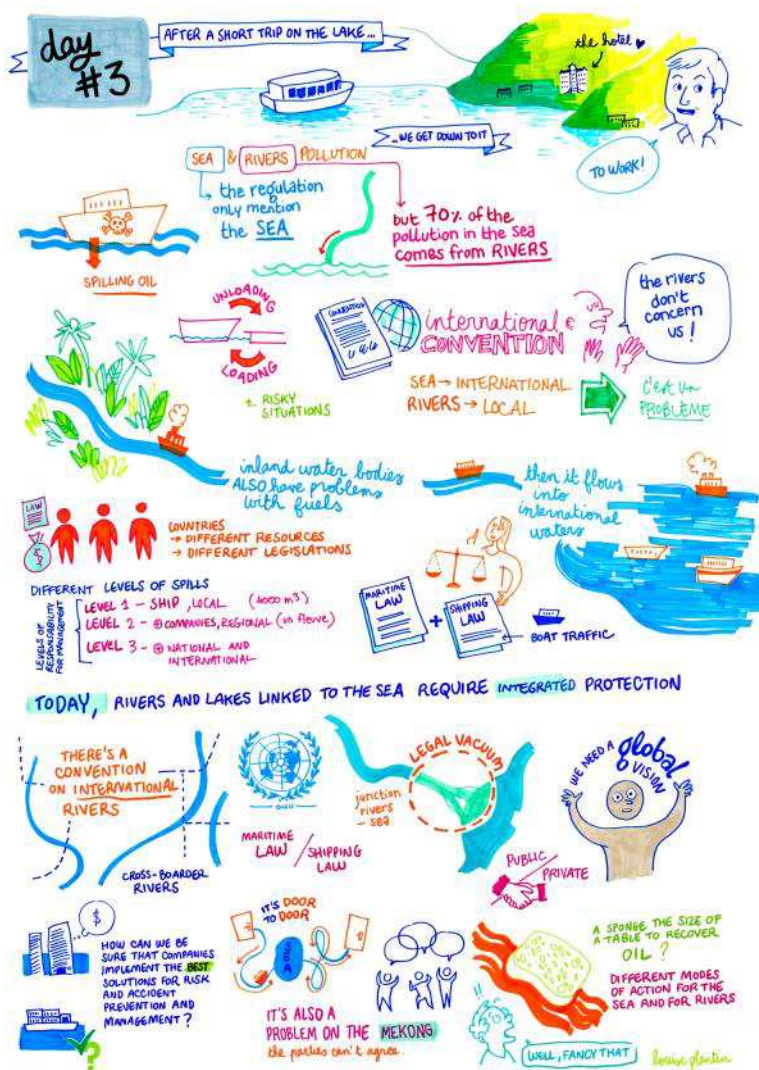 day
#3
AFTER A SHORT TRIP ON THE LAKE...
the hotel
...WE GET DOWN TO IT
TO WORK!
SEA & RIVERS POLLUTION
the regulation
only mention
the SEA
but 70% of the
pollution in the sea
comes from RIVERS
SPILLING OIL
UNLOADING
LOADING
RISKY
SITUATIONS
CONVENTION
international
CONVENTION
the rivers
don't
concern
us!
SEA → INTERNATIONAL
RIVERS → LOCAL
c'est un
PROBLÈME
inland water bodies
ALSO have problems
with fuels
then it flows
into
international
waters
LAW
$
COUNTRIES
→ DIFFERENT RESOURCES
→ DIFFERENT LEGISLATIONS
DIFFERENT LEVELS OF SPILLS
LEVELS OF
RESPONSABILITY
FOR MANAGEMENT
LEVEL 1 - SHIP, LOCAL (4000 m3)
LEVEL 2 - ⊕ COMPANIES, REGIONAL (un fleuve)
LEVEL 3 - ⊕ NATIONAL AND
INTERNATIONAL
MARITIME
LAW
+
SHIPPING
LAW
BOAT TRAFFIC
TODAY, RIVERS AND LAKES LINKED TO THE SEA REQUIRE INTEGRATED PROTECTION
THERE'S A
CONVENTION
ON INTERNATIONAL
RIVERS
CROSS-BOARDER
RIVERS
MARITIME
LAW / SHIPPING
LAW
LEGAL VACUUM
junction
rivers
- sea
WE NEED A global VISION
PUBLIC
PRIVATE
$
HOW CAN WE BE
SURE THAT COMPANIES
IMPLEMENT THE BEST
SOLUTIONS FOR RISK
AND ACCIDENT
PREVENTION AND
MANAGEMENT?
?
IT'S DOOR
TO DOOR
SEA
IT'S ALSO A
PROBLEM ON THE MEKONG
the parties can't agree.
A SPONGE THE SIZE OF
A TABLE TO RECOVER
OIL?
DIFFERENT MODES
OF ACTION FOR THE
SEA AND FOR RIVERS
!!
WELL, FANCY THAT
louise plantin